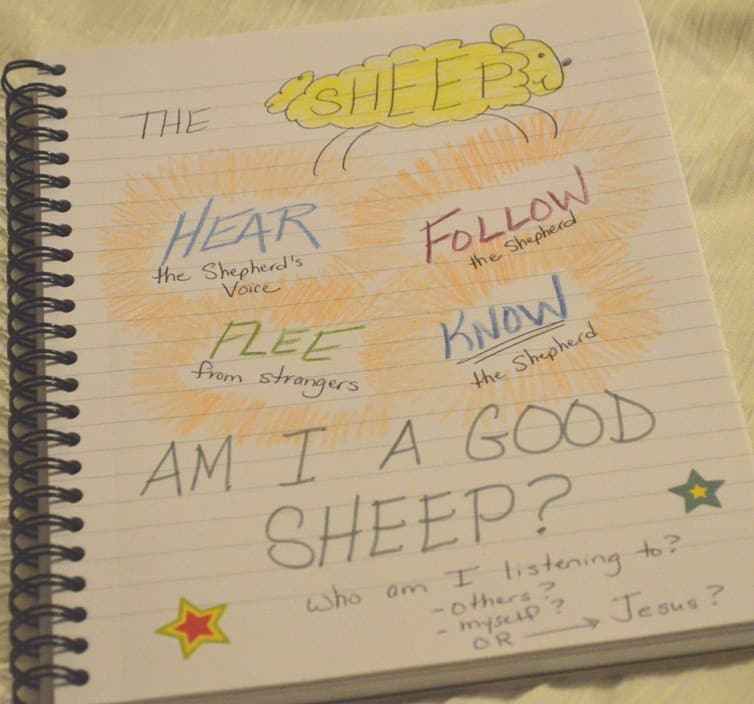 THE SHEEP
HEAR
the Shepherd's
Voice
FOLLOW
the Shepherd
FLEE
from strangers
KNOW
the Shepherd
AM I A GOOD
SHEEP?
who am I listening to?
- others?
- myself?
OR → Jesus?